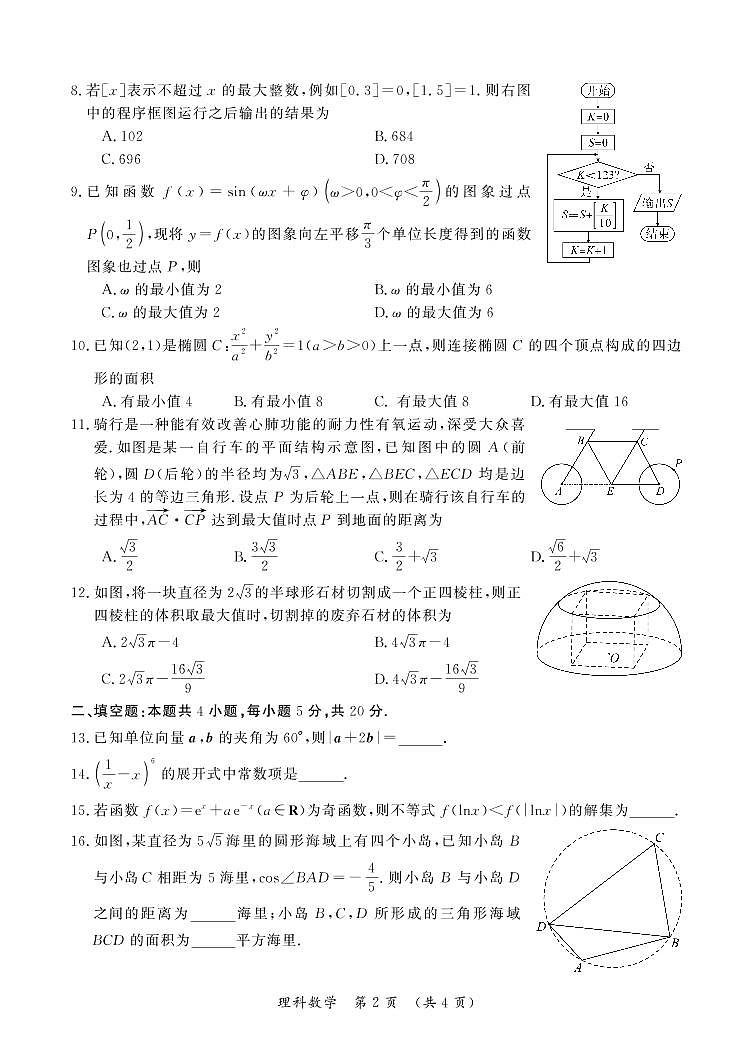 8. 若[x]表示不超过 x 的最大整数,例如[0.3]=0,[1.5]=1. 则右图
中的程序框图运行之后输出的结果为
A. 102 B. 684
C. 696 D. 708
开始
K=0
S=0
K<123?
否
是
S=S+[K/10]
输出S
K=K+1
结束
9. 已知函数 f(x)=sin(ωx+φ)(ω>0,0<φ<π/2)的图象过点
P(0,1/2),现将 y=f(x)的图象向左平移π/3个单位长度得到的函数
图象也过点 P,则
A. ω 的最小值为 2 B. ω 的最小值为 6
C. ω 的最大值为 2 D. ω 的最大值为 6
10. 已知(2,1)是椭圆 C:x²/a²+y²/b²=1(a>b>0)上一点,则连接椭圆 C 的四个顶点构成的四边
形的面积
A. 有最小值 4 B. 有最小值 8 C. 有最大值 8 D. 有最大值 16
11. 骑行是一种能有效改善心肺功能的耐力性有氧运动,深受大众喜
爱. 如图是某一自行车的平面结构示意图,已知图中的圆 A(前
轮),圆 D(后轮)的半径均为√3,△ABE,△BEC,△ECD 均是边
长为 4 的等边三角形. 设点 P 为后轮上一点,则在骑行该自行车的
过程中,AC→·CP→ 达到最大值时点 P 到地面的距离为
A. √3/2 B. 3√3/2 C. 3/2+√3 D. √6/2+√3
B C P
A E D
12. 如图,将一块直径为 2√3的半球形石材切割成一个正四棱柱,则正
四棱柱的体积取最大值时,切割掉的废弃石材的体积为
A. 2√3π−4 B. 4√3π−4
C. 2√3π−16√3/9 D. 4√3π−16√3/9
O
二、填空题:本题共 4 小题,每小题 5 分,共 20 分.
13. 已知单位向量 a,b 的夹角为 60°,则|a+2b|=______.
14. (1/x−x)⁶ 的展开式中常数项是______.
15. 若函数 f(x)=eˣ+ae⁻ˣ(a∈R)为奇函数,则不等式 f(lnx)<f(|lnx|)的解集为______.
16. 如图,某直径为 5√5海里的圆形海域上有四个小岛,已知小岛 B
与小岛 C 相距为 5 海里,cos∠BAD=−4/5. 则小岛 B 与小岛 D
之间的距离为______海里;小岛 B,C,D 所形成的三角形海域
BCD 的面积为______平方海里.
C
D
B
A
理科数学 第 2 页 (共 4 页)